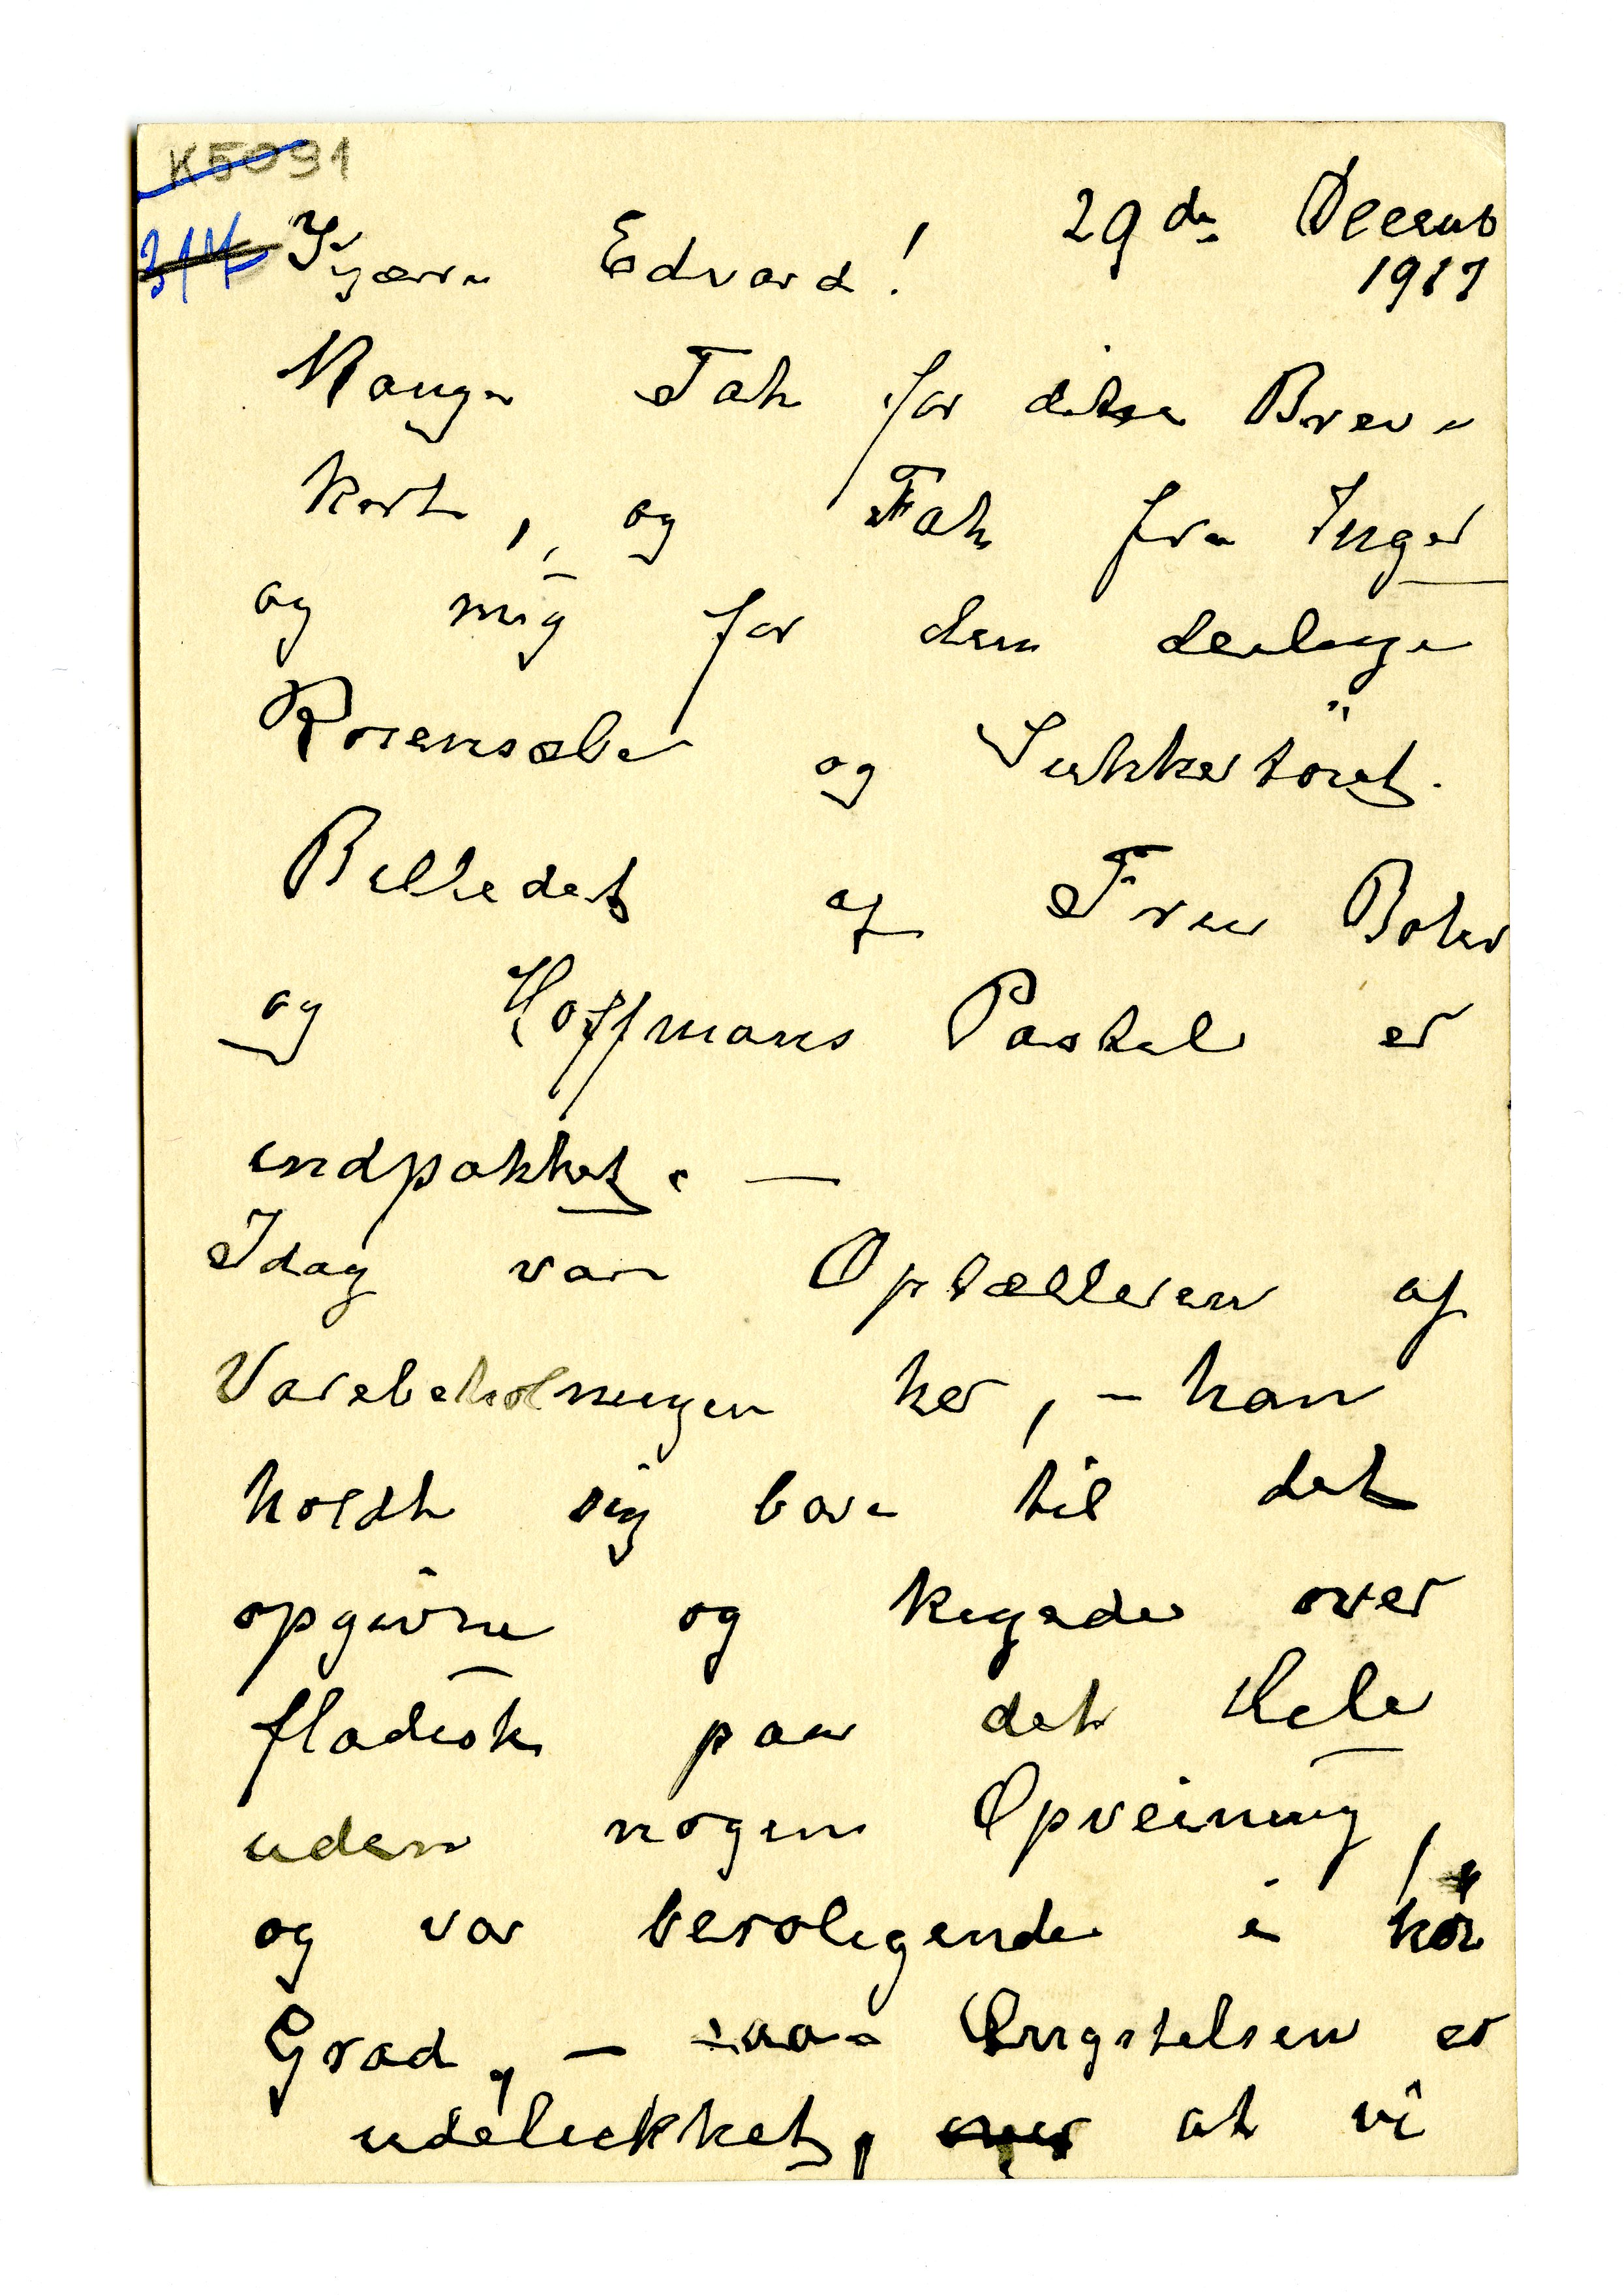 K5091
314
29de Decemb
Kjære Edvard!
1917
Mange Tak for disse Brev
kort, og Tak fra Inger
og mig for den deilige
Rosensæbe og Sukkertöiet.
Billedet af Frue Bøhr
og Hoffmans Pastel er
indpakket. —
Idag var Optælleren af
Varebeholningen her, – han
holdt sig bare til det
opgivne og kigede over
fladisk paa det Hele
uden nogen Opveining,
og var beroligende i höi
Grad, – Engstelsen er
udelukket, at vi